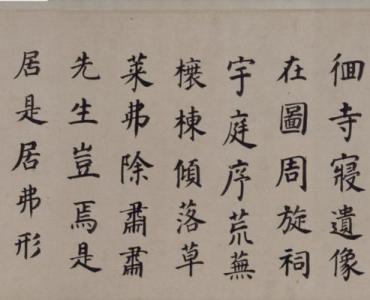 徊寺寢遺像
在圖周旋祠
宇庭序荒蕪
榱棟傾落草
萊弗除肅肅
先生豈焉是
居是居弗形